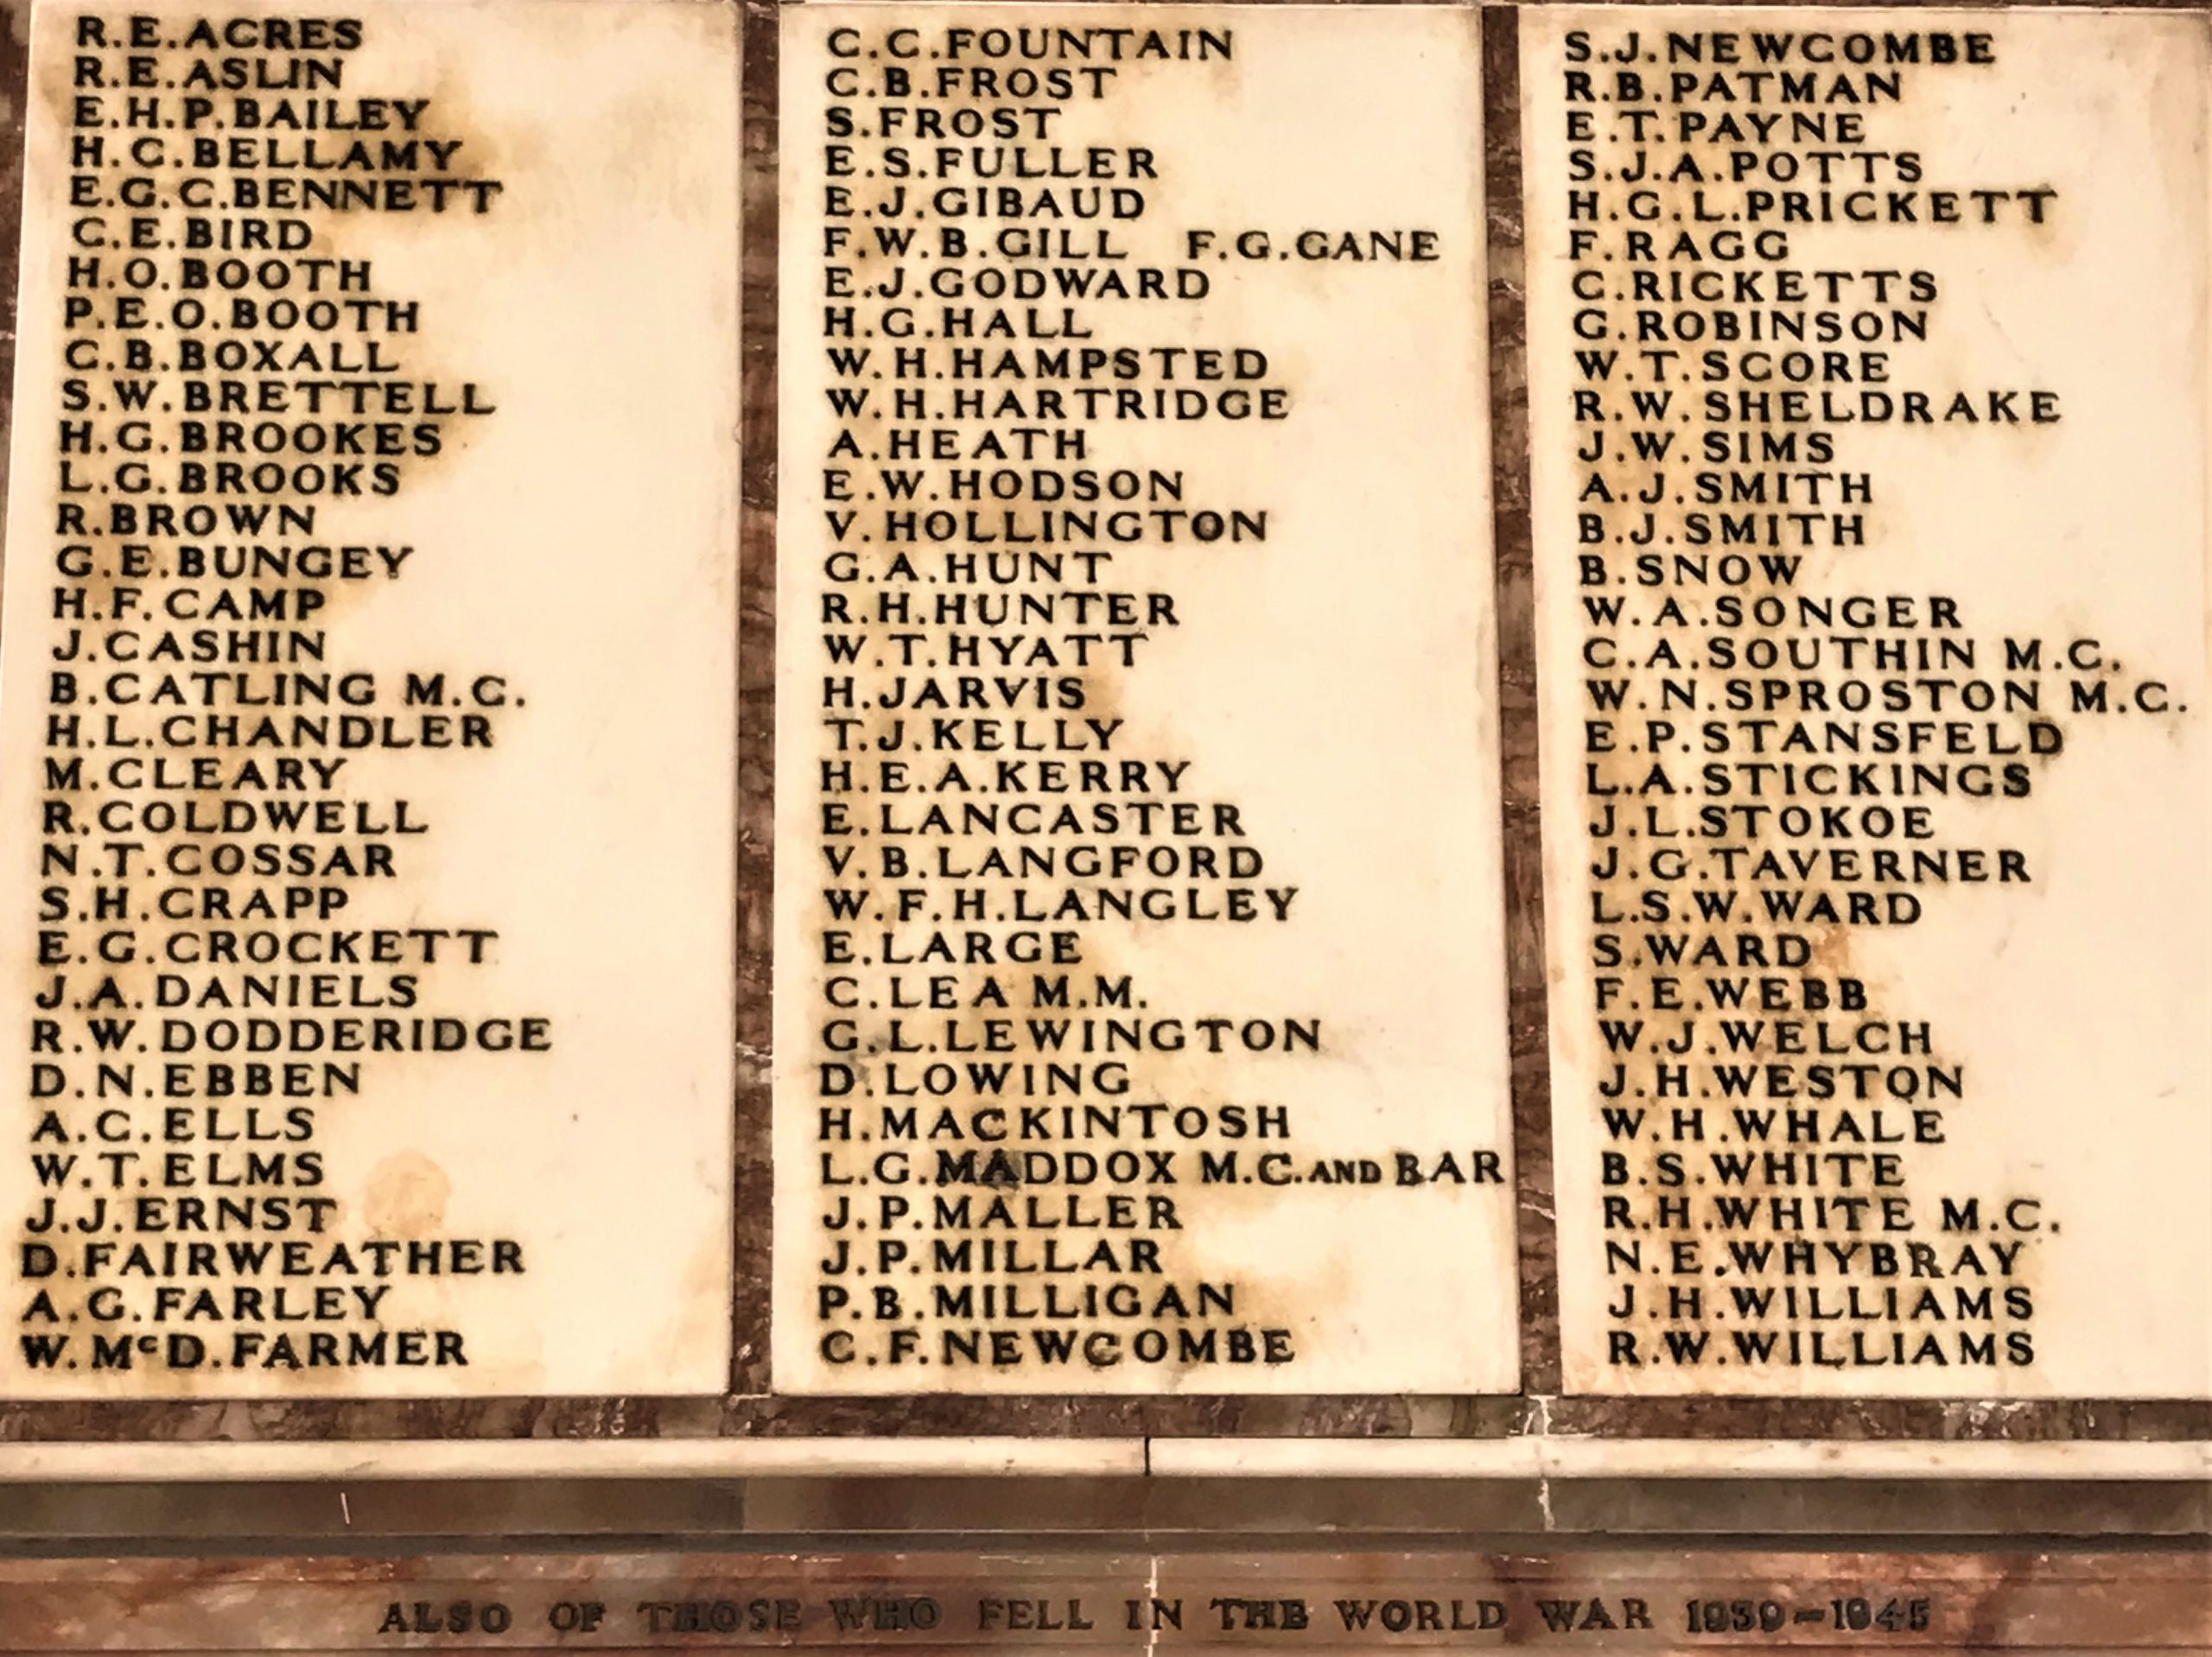 R.E.ACRES
R.E.ASLIN
E.H.P.BAILEY
H.C.BELLAMY
E.G.C.BENNETT
C.E.BIRD
H.O.BOOTH
P.E.O.BOOTH
C.B.BOXALL
S.W.BRETTELL
H.G.BROOKES
L.G.BROOKS
R.BROWN
G.E.BUNGEY
H.F.CAMP
J.CASHIN
B.CATLING M.C.
H.L.CHANDLER
M.CLEARY
R.COLDWELL
N.T.COSSAR
S.H.CRAPP
E.G.CROCKETT
J.A.DANIELS
R.W.DODDERIDGE
D.N.EBBEN
A.C.ELLS
W.T.ELMS
J.J.ERNST
D.FAIRWEATHER
A.G.FARLEY
W.McD.FARMER
C.C.FOUNTAIN
C.B.FROST
S.FROST
E.S.FULLER
E.J.GIBAUD
F.W.B.GILL F.G.GANE
E.J.GODWARD
H.G.HALL
W.H.HAMPSTED
W.H.HARTRIDGE
A.HEATH
E.W.HODSON
V.HOLLINGTON
G.A.HUNT
R.H.HUNTER
W.T.HYATT
H.JARVIS
T.J.KELLY
H.E.A.KERRY
E.LANCASTER
V.B.LANGFORD
W.F.H.LANGLEY
E.LARGE
C.LEA M.M.
G.L.LEWINGTON
D.LOWING
H.MACKINTOSH
L.G.MADDOX M.C. AND BAR
J.P.MALLER
J.P.MILLAR
P.B.MILLIGAN
C.F.NEWCOMBE
S.J.NEWCOMBE
R.B.PATMAN
E.T.PAYNE
S.J.A.POTTS
H.G.L.PRICKETT
F.RAGG
C.RICKETTS
G.ROBINSON
W.T.SCORE
R.W.SHELDRAKE
J.W.SIMS
A.J.SMITH
B.J.SMITH
B.SNOW
W.A.SONGER
C.A.SOUTHIN M.C.
W.N.SPROSTON M.C.
E.P.STANSFELD
L.A.STICKINGS
J.L.STOKOE
J.G.TAVERNER
L.S.W.WARD
S.WARD
F.E.WEBB
W.J.WELCH
J.H.WESTON
W.H.WHALE
B.S.WHITE
R.H.WHITE M.C.
N.E.WHYBRAY
J.H.WILLIAMS
R.W.WILLIAMS
ALSO OF THOSE WHO FELL IN THE WORLD WAR 1939-1945